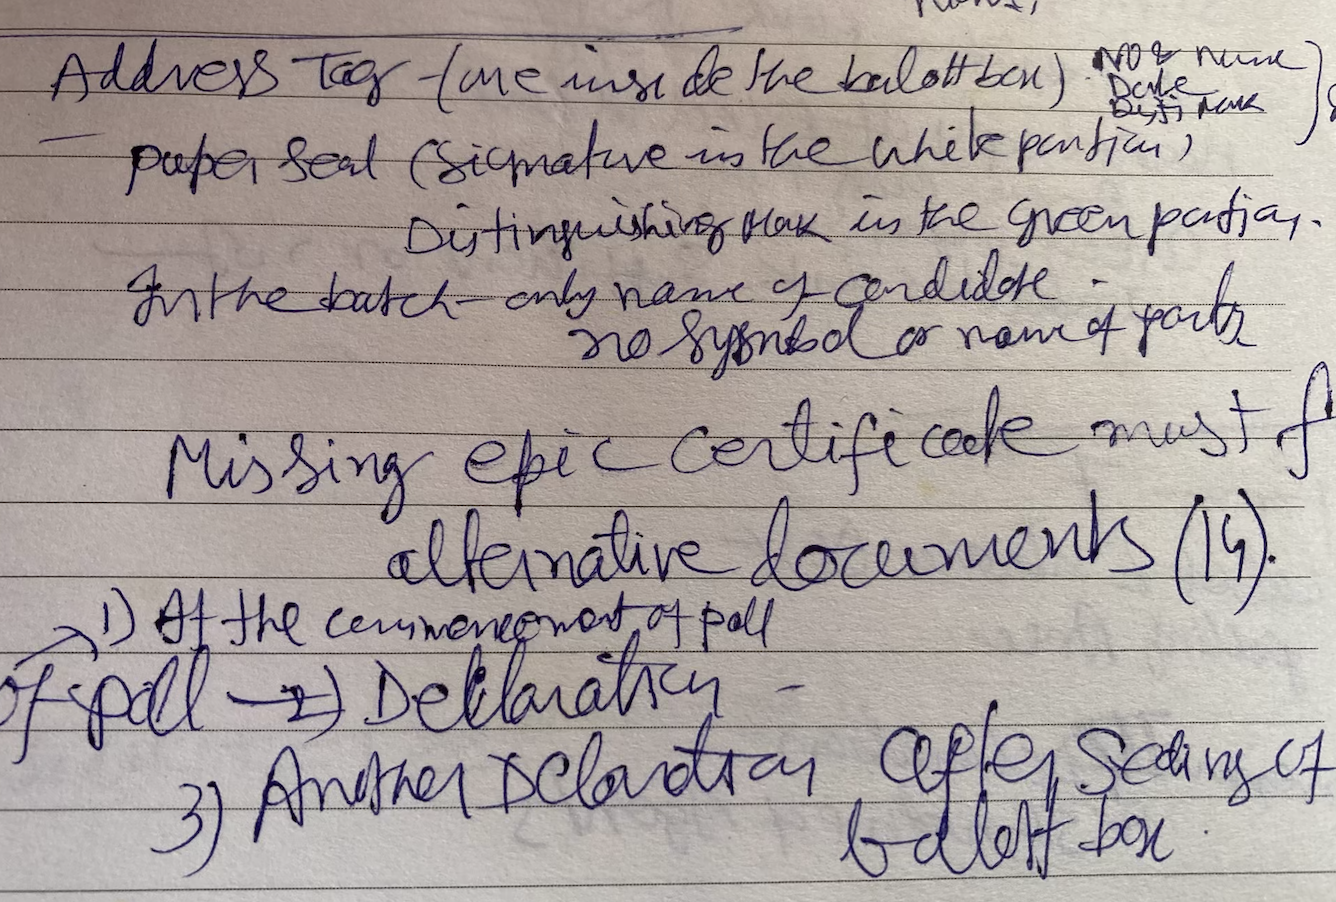 Address Tag - (one inside the balott box) NO & name
Date
Disti Mark
- paper seal (Signature in the white portion)
Distinguishing Mark in the green portion.
In the batch - only name of candidate -
no Symbol or name of party
Missing epic certificate must
alternative documents (14).
1) At the commencement of poll
of poll → 2) Decklaration -
3) Another Declaration after Sealing of
balott box.